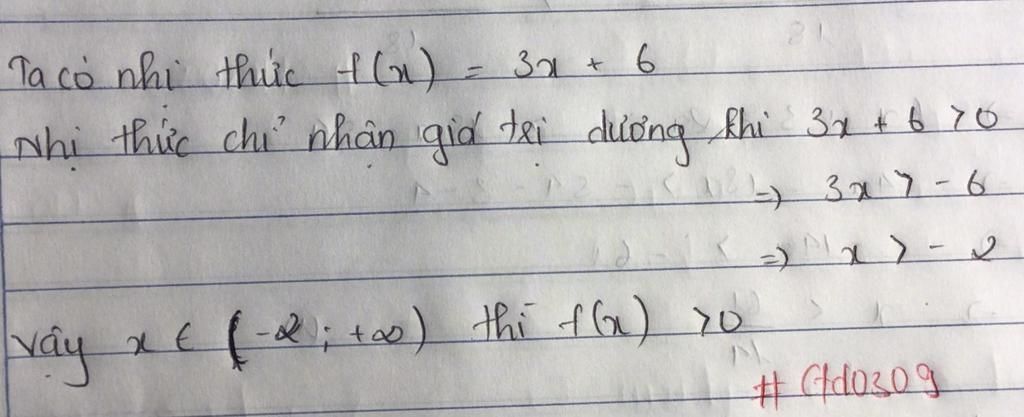 Ta có nhị thức f(x) = 3x + 6
Nhị thức chỉ nhận giá trị dương khi 3x + 6 > 0
=> 3x > - 6
=> x > - 2
Vậy x ∈ (-2; +∞) thì f(x) > 0